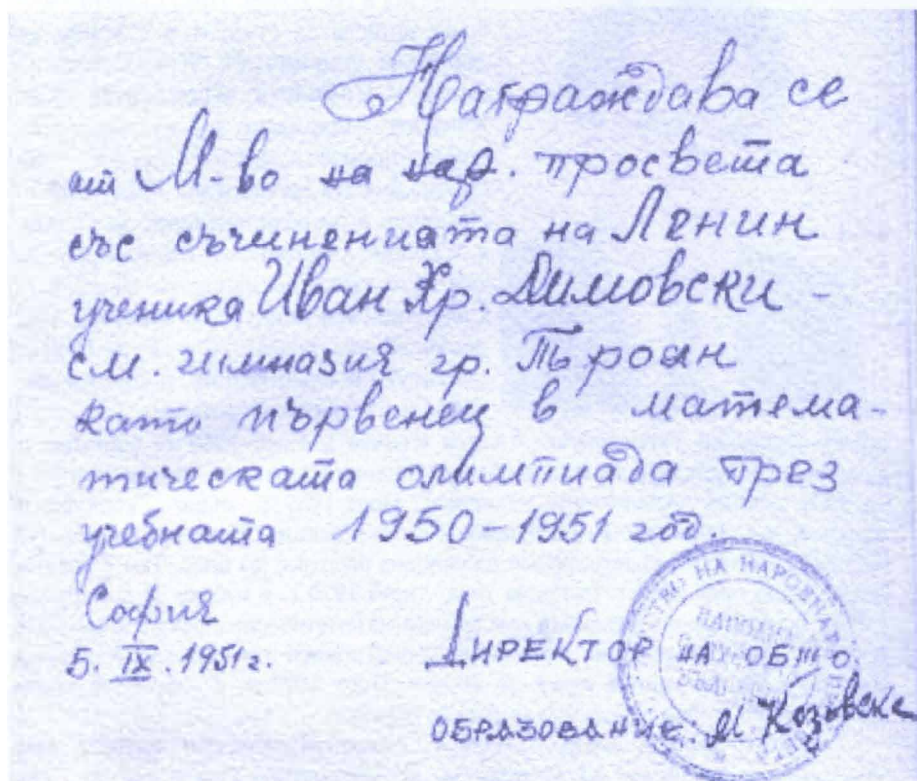 Награждава се
от М-во на нар. просвета
със съчиненията на Ленин
ученика Иван Хр. Димовски -
см. гимназия гр. Троян
като първенец в матема-
тическата олимпиада през
учебната 1950-1951 год.
София
5. IX. 1951 г.
Директор на общо
образование: М Козовски
НА НАРОДНА